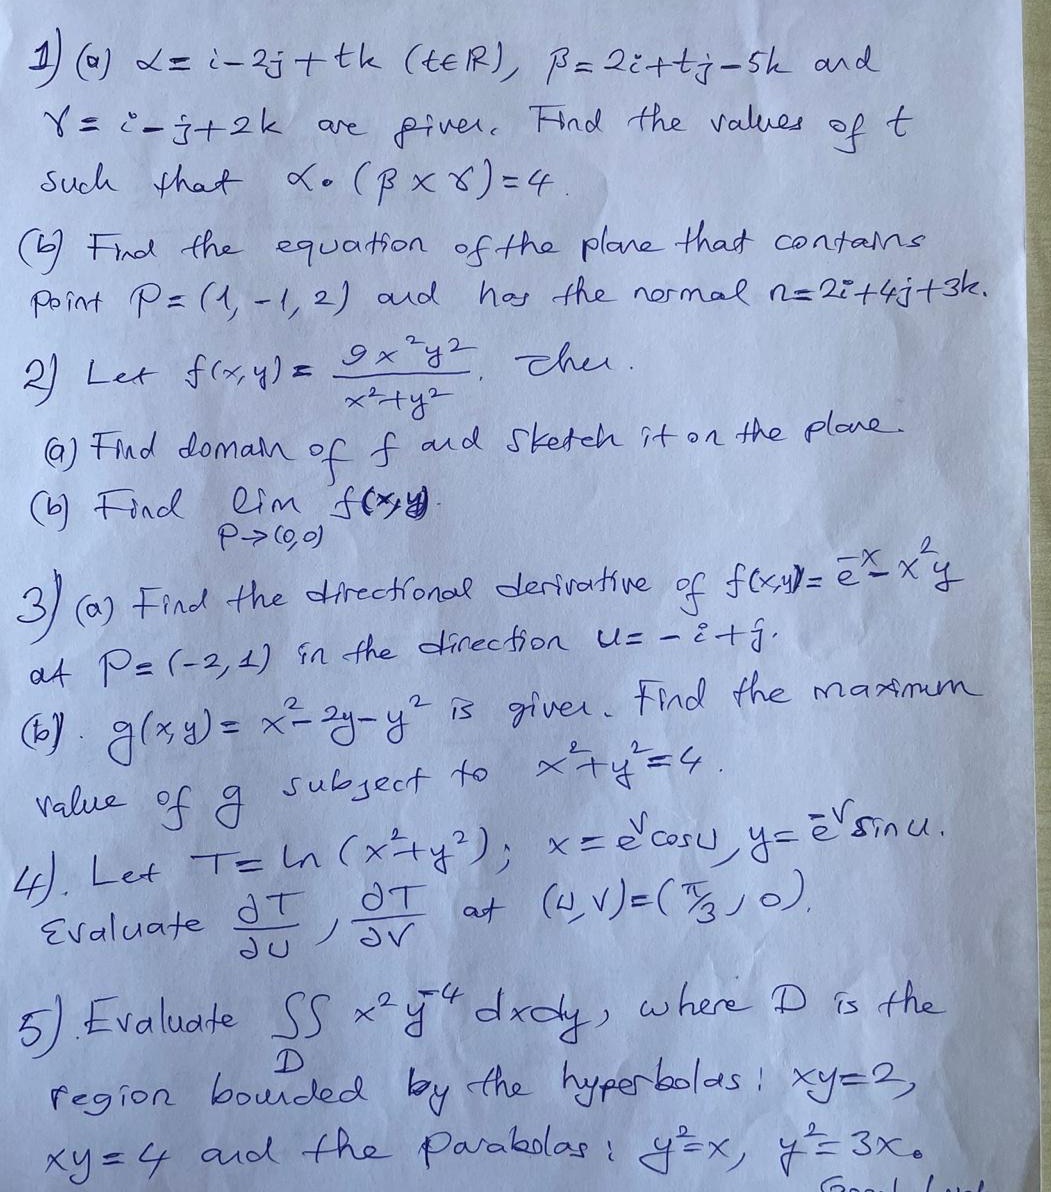 1) (a) α = i - 2j + tk (t∈R), β = 2i + tj - 5k and
γ = i - j + 2k are given. Find the values of t
such that α • (β × γ) = 4.
(b) Find the equation of the plane that contains
point P = (1, -1, 2) and has the normal n = 2i + 4j + 3k.
2) Let f(x,y) = 9x²y² / x² + y². Then.
(a) Find domain of f and sketch it on the plane.
(b) Find lim f(x,y).
P→(0,0)
3) (a) Find the directional derivative of f(x,y) = e⁻ˣ - x²y
at P = (-2, 1) in the direction u = - i + j.
(b). g(x,y) = x² - 2y - y² is given. Find the maximum
value of g subject to x² + y² = 4.
4). Let T = ln (x² + y²); x = eᵛcosu, y = e⁻ᵛsinu.
Evaluate ∂T/∂U, ∂T/∂V at (U,V) = (π/3, 0).
5). Evaluate ∬ x² y⁻⁴ dxdy, where D is the
D
region bounded by the hyperbolas: xy = 2,
xy = 4 and the parabolas: y² = x, y² = 3x.